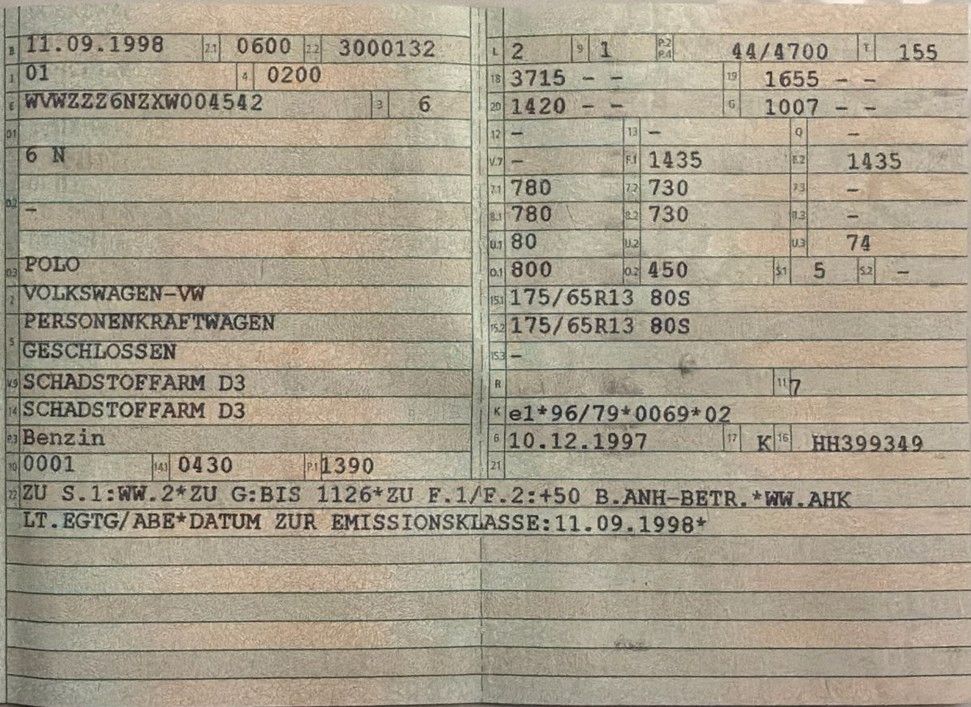 B 11.09.1998 2.1 0600 2.2 3000132
J 01 4 0200
E WVWZZZ6NZXW004542 3 6
D1
6 N
D.2 -
D.3 POLO
2 VOLKSWAGEN-VW
PERSONENKRAFTWAGEN
5 GESCHLOSSEN
V.9 SCHADSTOFFARM D3
14 SCHADSTOFFARM D3
P.3 Benzin
10 0001 14.1 0430 P.1 1390
L 2 9 1 P.2 P.4 44/4700 T 155
18 3715 - - 19 1655 - -
20 1420 - - G 1007 - -
12 - 13 - Q -
V.7 - F.1 1435 F.2 1435
7.1 780 7.2 730 7.3 -
8.1 780 8.2 730 8.3 -
U.1 80 U.2 U.3 74
O.1 800 O.2 450 S.1 5 S.2 -
15.1 175/65R13 80S
15.2 175/65R13 80S
15.3 -
R 11 7
K e1*96/79*0069*02
6 10.12.1997 17 K 16 HH399349
21
22 ZU S.1:WW.2*ZU G:BIS 1126*ZU F.1/F.2:+50 B.ANH-BETR.*WW.AHK
LT.EGTG/ABE*DATUM ZUR EMISSIONSKLASSE:11.09.1998*